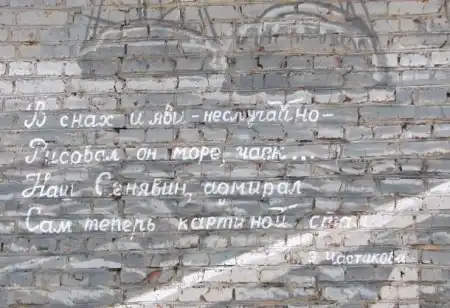 В снах и яви - неслучайно -
Рисовал он море, чаек...
Наш Сенявин, адмирал
Сам теперь картиной стал
Э. Частикова